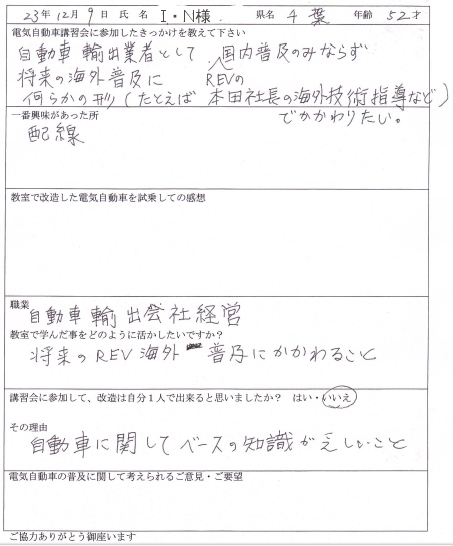 23年12月9日 氏名 I・N様. 県名 千葉 年齢 52才
電気自動車講習会に参加したきっかけを教えて下さい
自動車輸出業者として、国内普及のみならず
将来の海外普及に REVの
何らかの形(たとえば 本田社長の海外技術指導など)
でかかわりたい。
一番興味があった所
配線
教室で改造した電気自動車を試乗しての感想
職業
自動車輸出会社経営
教室で学んだ事をどのように活かしたいですか?
将来のREV海外 普及にかかわること
講習会に参加して、改造は自分1人で出来ると思いましたか? はい・いいえ
その理由
自動車に関してベースの知識が乏しいこと
電気自動車の普及に関して考えられるご意見・ご要望
ご協力ありがとう御座います